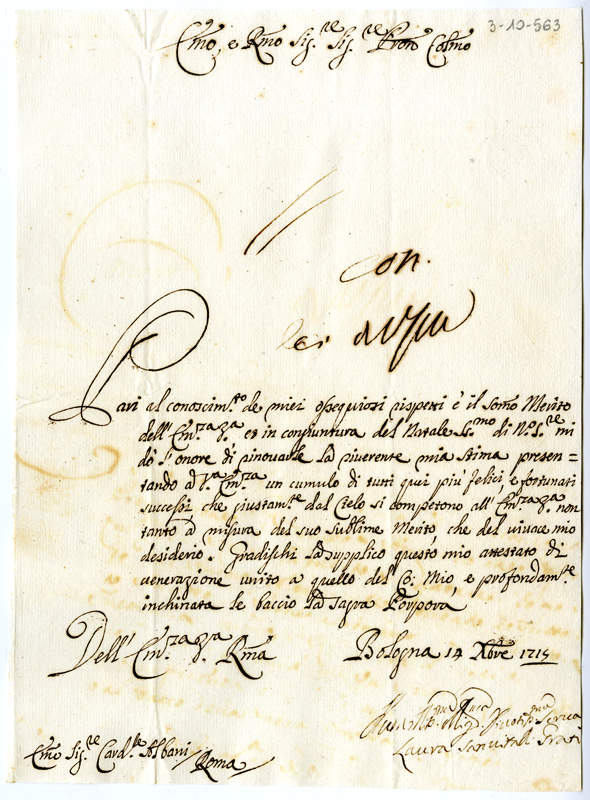 3-10-563
Emo, e Rmo Sig.re Sig.re Prõn Colmo
Con
lei
Pari al conoscim.to de miei ossequiosi rispetti è il somo Merito
dell'Em.za V.a, et in congiuntura del Natale S.mo di N.o S.re mi
dò l'onore di rinovarle la riverente mia stima presen=
tando à V.a Em.za un cumulo di tutti qui più felici, e fortunati
successi che giustam.te dal Cielo si competono all'Em.za V.a non
tanto à misura del suo sublime Merito, che del vivace mio
desiderio. Gradischi la supplico questo mio attestato di
venerazione unito a quello del Co: Mio, e profondam.te
inchinata le baccio la Sagra Porpora
Dell'Em.za V.a Rma Bologna 14 Xbre 1715
Laura Sanvitali Grati
Emo Sig.re Card.le Albani / Roma